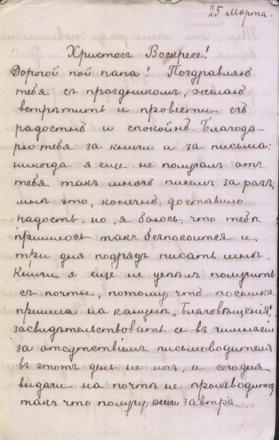 25 Марта.
Христосъ Воскресе!
Дорогой мой папа! Поздравляю
тебя съ праздникомъ, желаю
встрѣтить и провести съ
радостью и спокойнѣ. Благода-
рю тебя за книги и за письма:
никогда я еще не получалъ отъ
тебя такъ много писемъ за разъ,
мнѣ это, конечно, доставило
радость, но, я боюсь, что тебѣ
пришлось такъ безпокоится и
три дня подрядъ писать мнѣ.
Книги я еще не успѣлъ получить
съ почты, потому что посылка
пришла на канунѣ Благовѣщенія,
засвидѣтельствовать ее въ гимназіи
за отсутствіемъ письмоводителя
въ этотъ день не могъ, и сегодня
выдачи на почтѣ не производится
такъ что получу завтра